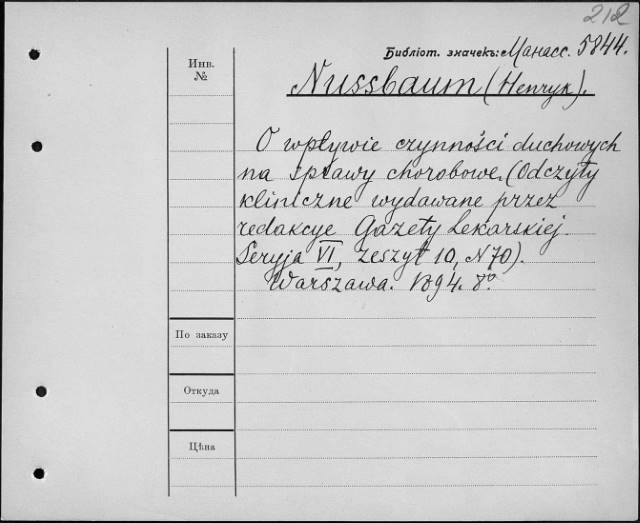 212
Библіот. значекъ: Манасс. 5844.
Инв.
№
Nussbaum (Henryk).
O wpływie czynności duchowych
na sprawy chorobowe. (Odczyty
kliniczne wydawane przez
redakcye Gazety Lekarskiej.
Seryja VI, zeszyt 10, N 70).
Warszawa. 1894. 8º.
По заказу
Откуда
Цѣна